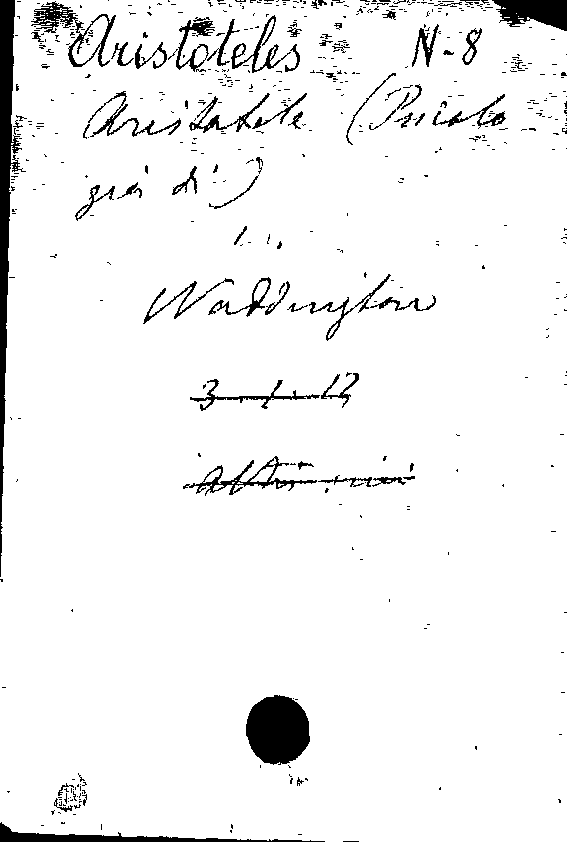 Aristoteles N-8
Aristotele (Psicolo
gia di)
Waddington
3. 1. 12